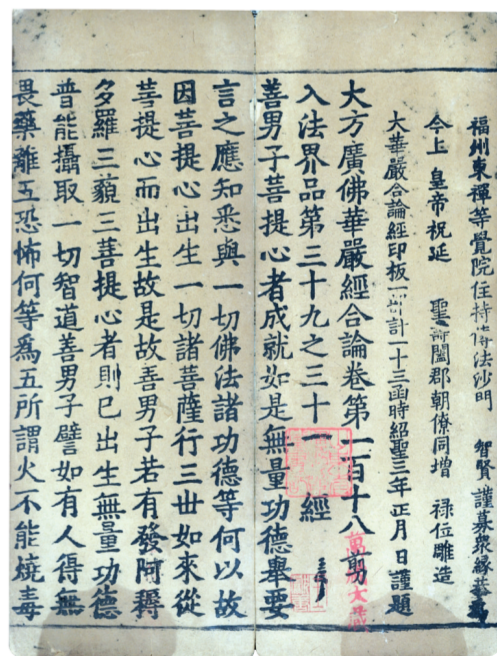 福州東禪等覺院住持傳法沙門 智賢 謹募眾緣恭為
今上皇帝祝延 聖壽闔郡朝僚同增 祿位雕造
大華嚴合論經印板一部計一十三函時紹聖三年正月日謹題
大方廣佛華嚴經合論卷第一百十八 剪
入法界品第三十九之三十一 經
善男子菩提心者成就如是無量功德舉要
言之應知悉與一切佛法諸功德等何以故
因菩提心出生一切諸菩薩行三世如來從
菩提心而出生故是故善男子若有發阿耨
多羅三藐三菩提心者則已出生無量功德
普能攝取一切智道善男子譬如有人得無
畏藥離五恐怖何等為五所謂火不能燒毒